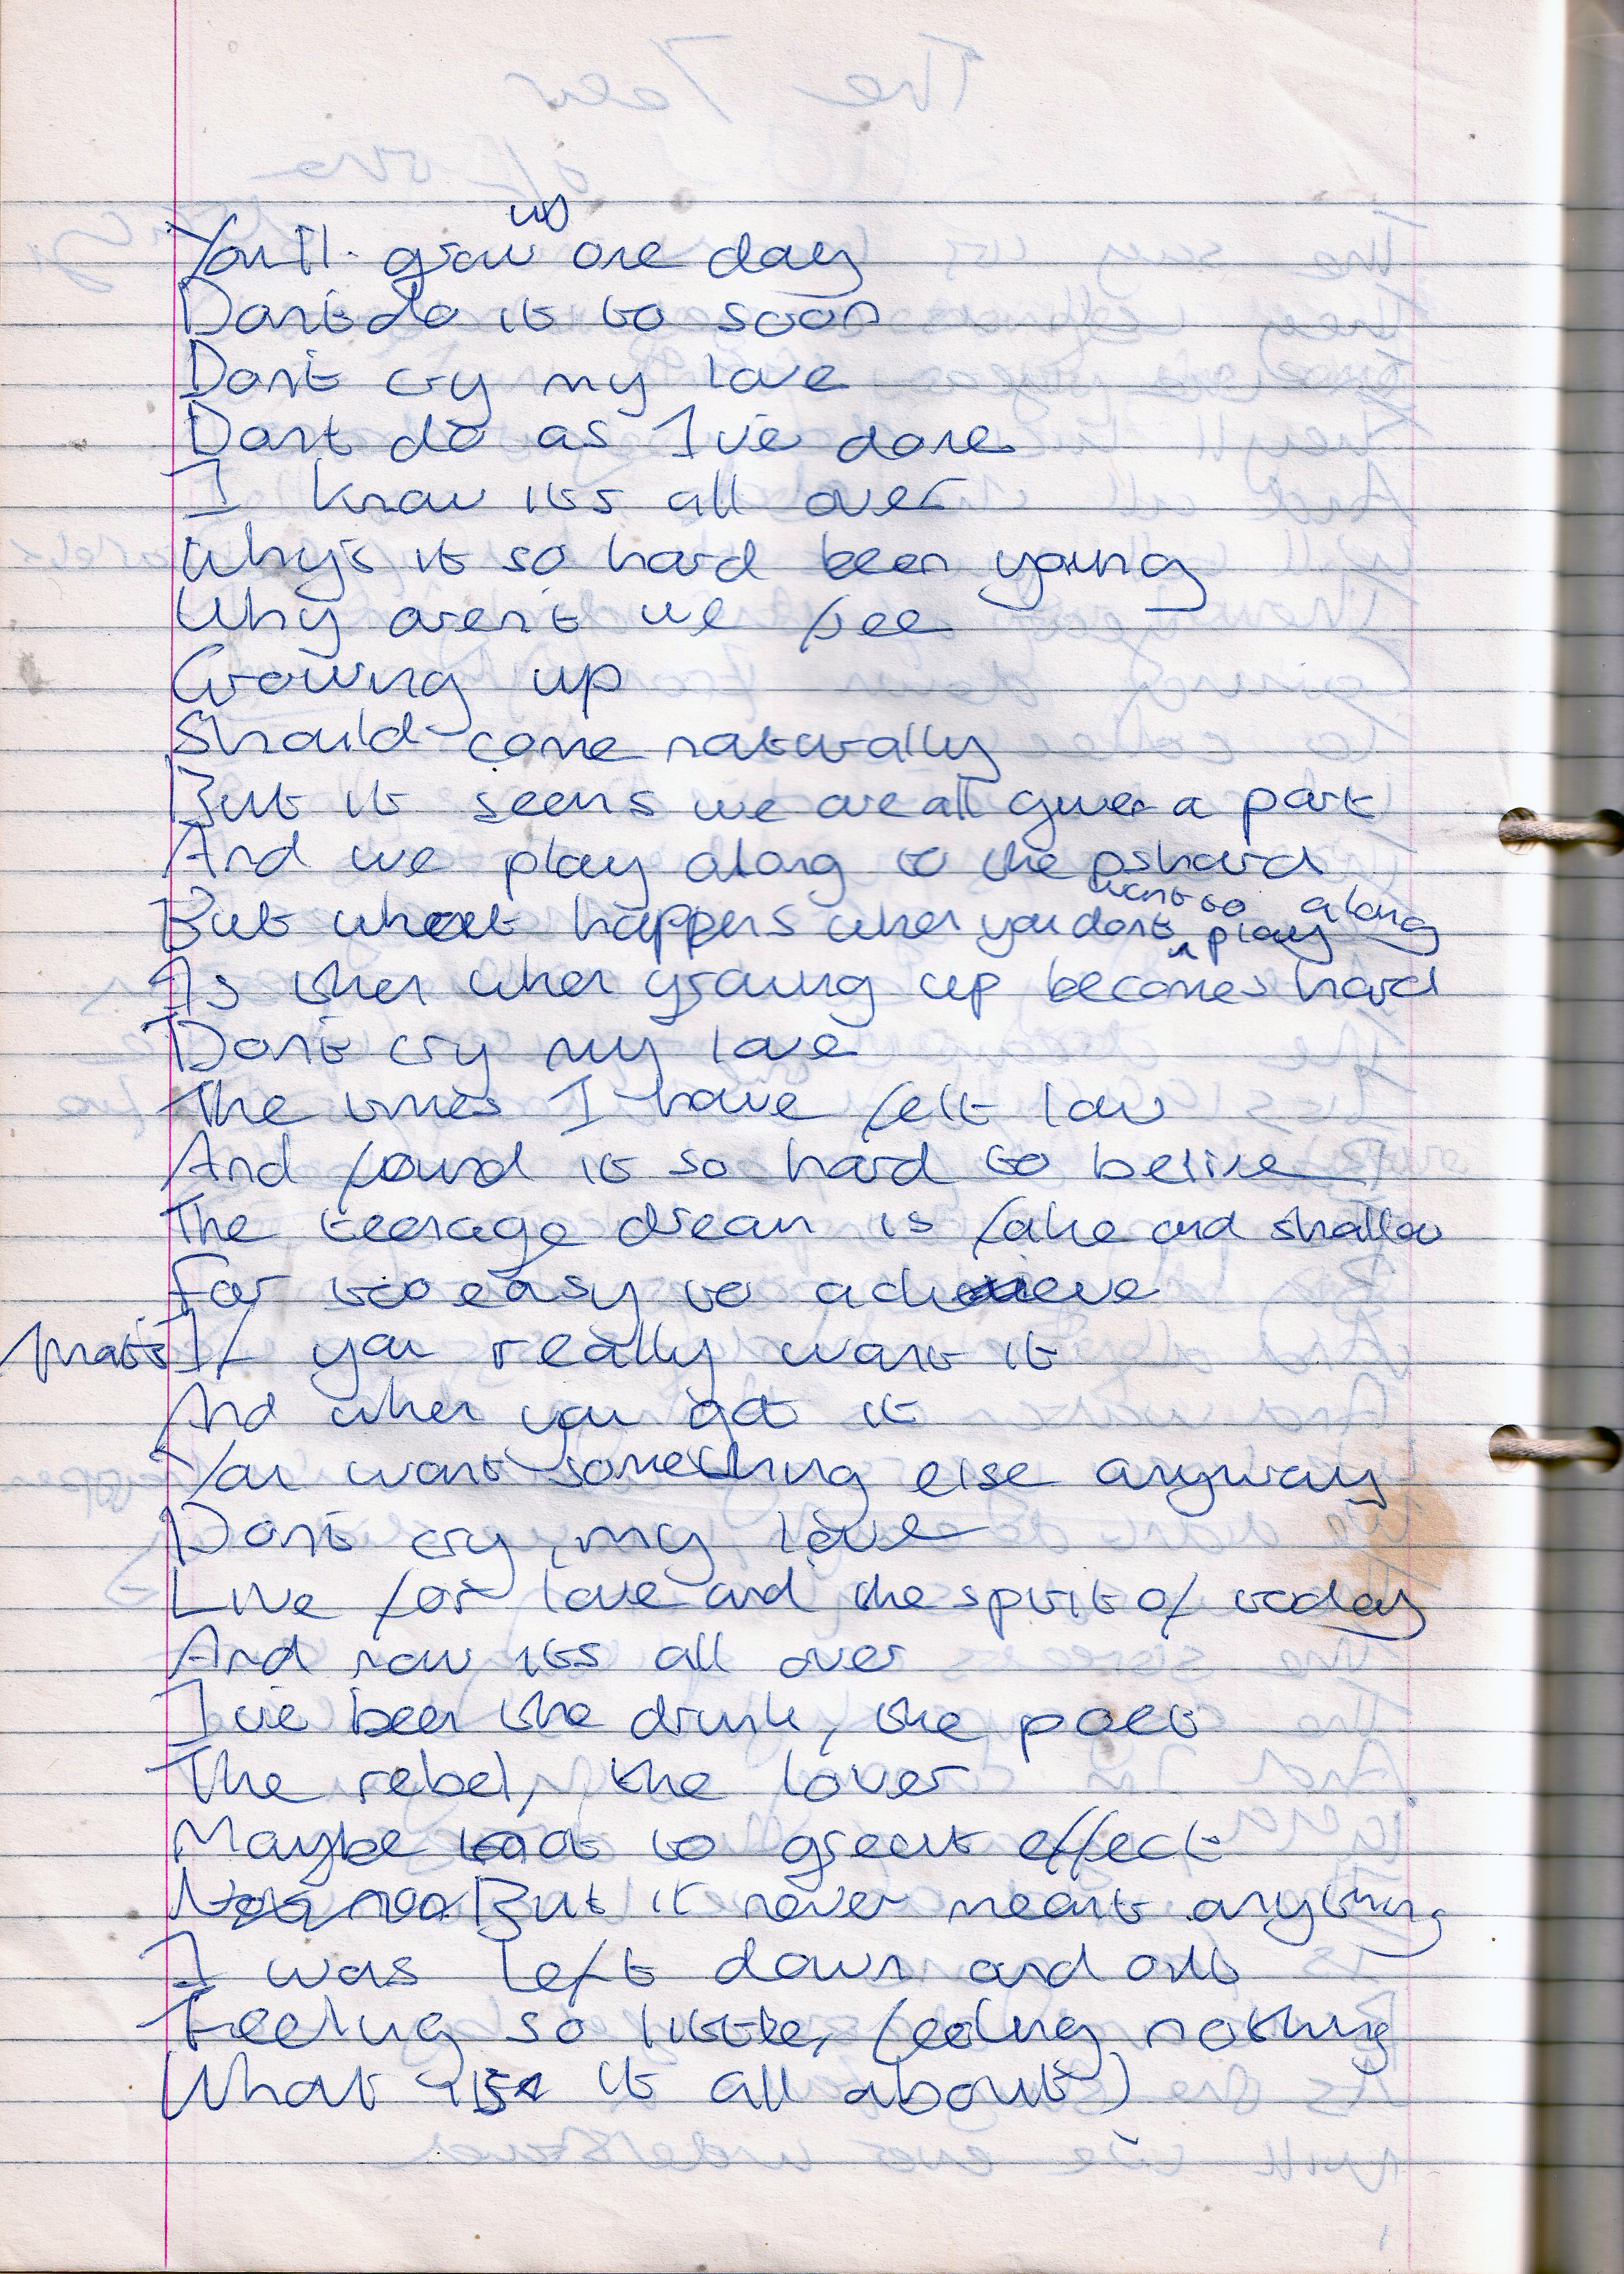 You'll grow up one day
Don't do it to soon
Don't cry my love
Dont do as I've done
I know its all over
Why's it so hard been young
Why aren't we free
Growing up
Should come naturally
But it seems we are all given a part
And we play along to the
But what happens when you dont want to play along
Is then when growing up becomes hard
Don't cry my love
The times I have felt low
And found it so hard to belive
The teenage dream is fake and shallow
Far too easy to achieve
that's If you really want it
And when you got it
You want something else anyway
Don't cry my love
Live for love and the spirit of today
And now its all over
I've been the drunk, the poet
The rebel, the lover
Maybe not to great effect
But it never meant anything
I was left down and out
Feeling so little, feeling nothing
What is it all about?